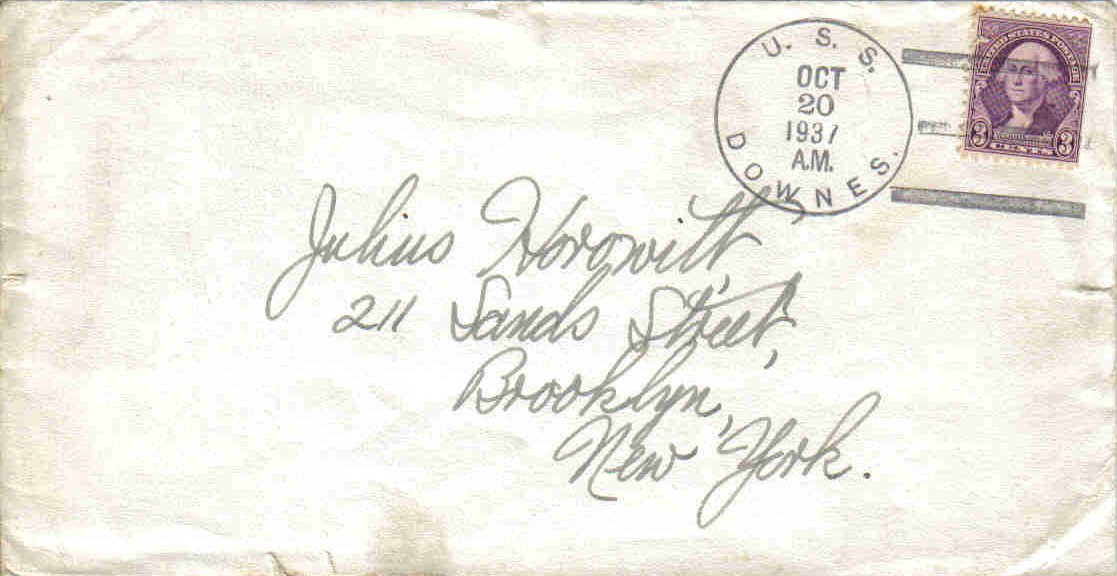 U. S. S.
OCT
20
1937
A.M.
DOWNES.
UNITED STATES POSTAGE
3 3
CENTS
Julius Horowitt,
211 Sands Street,
Brooklyn,
New York.